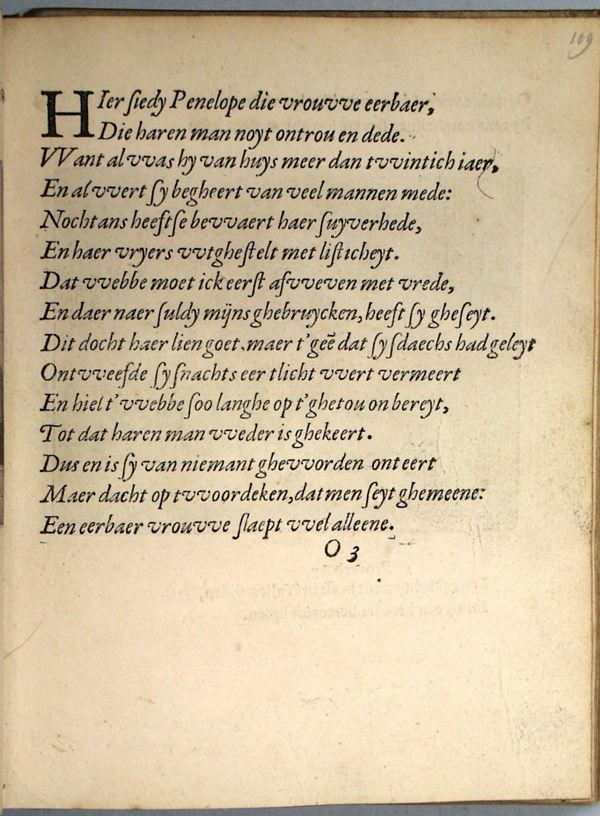 109
HIer ſiedy Penelope die vrouvve eerbaer,
Die haren man noyt ontrou en dede.
VVant al vvas hy van huys meer dan tvvintich iaer,
En al vvert ſy begheert van veel mannen mede:
Nochtans heeftſe bevvaert haer ſuyverhede,
En haer vryers vvtgheſtelt met liſticheyt.
Dat vvebbe moet ick eerſt afvveven met vrede,
En daer naer ſuldy mijns ghebruycken, heeft ſy gheſeyt.
Dit docht haer lien goet, maer t'geẽ dat ſy ſdaechs had geleyt
Ontvveefde ſy ſnachts eer tlicht vvert vermeert
En hielt t'vvebbe ſoo langhe op t'ghetou onbereyt,
Tot dat haren man vveder is ghekeert.
Dus en is ſy van niemant ghevvorden onteert
Maer dacht op tvvoordeken, dat men ſeyt ghemeene:
Een eerbaer vrouvve ſlaept vvel alleene.
O 3